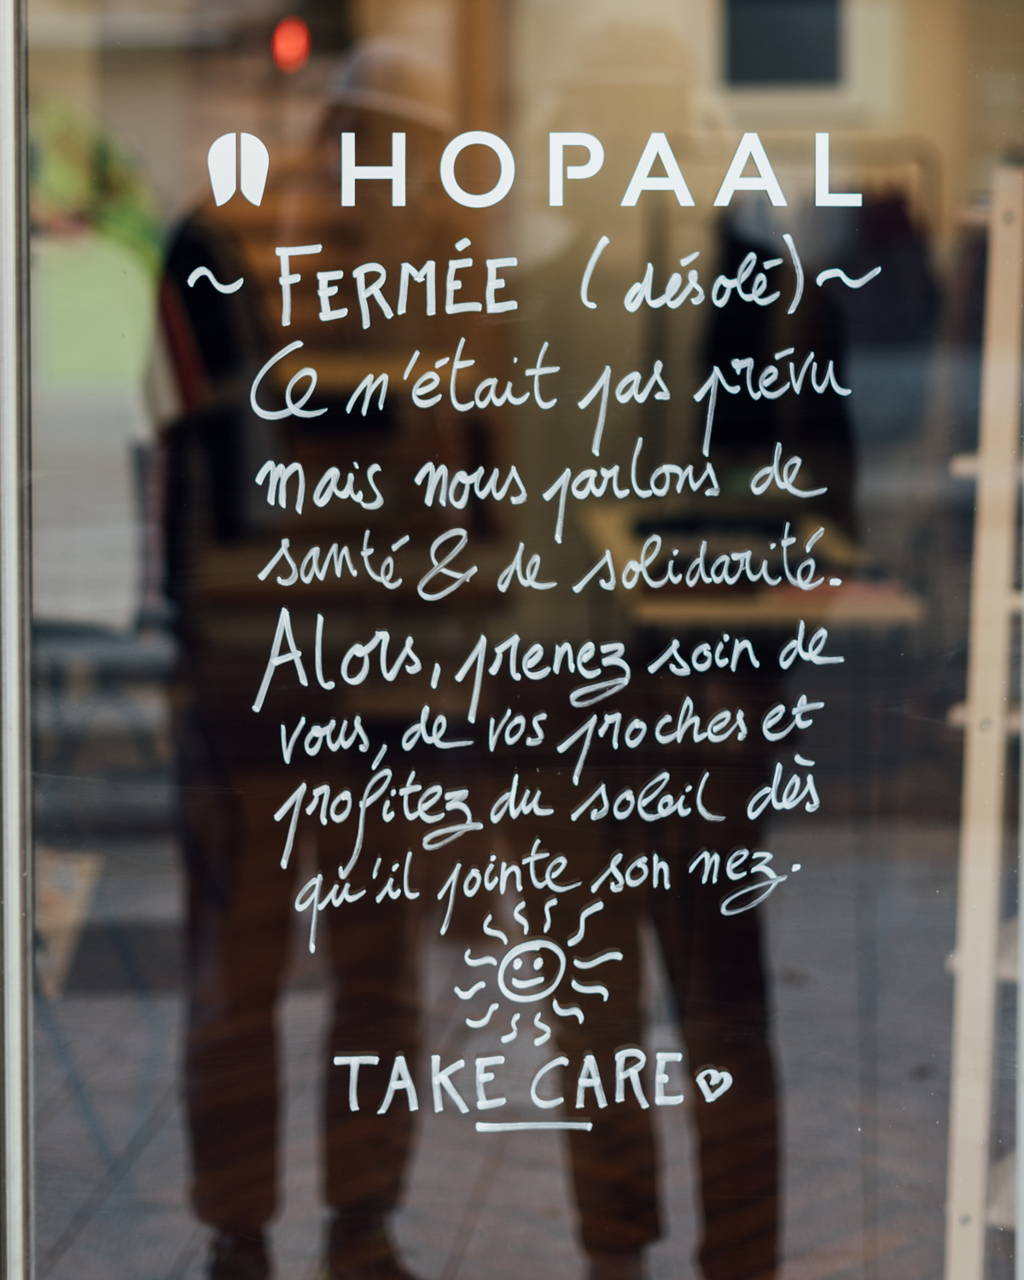 HOPAAL
~ FERMÉE (désolé) ~
Ce n'était pas prévu
mais nous parlons de
santé & de solidarité.
Alors, prenez soin de
vous, de vos proches et
profitez du soleil dès
qu'il pointe son nez.
TAKE CARE